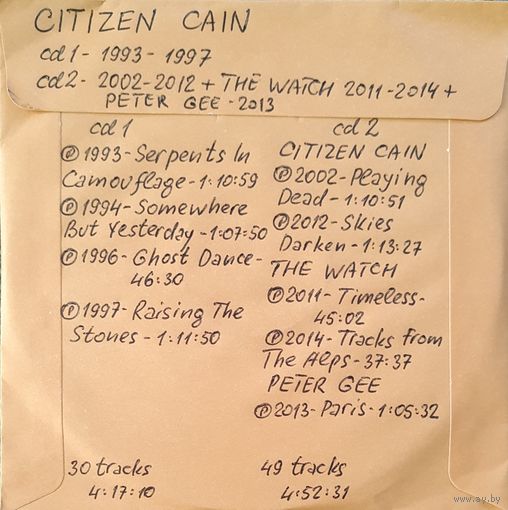 CITIZEN CAIN
cd1 - 1993 - 1997
cd2 - 2002-2012 + THE WATCH 2011-2014 +
PETER GEE - 2013
cd 1
Ⓟ1993-Serpents In
Camouflage-1:10:59
Ⓟ1994-Somewhere
But Yesterday-1:07:50
Ⓟ1996-Ghost Dance-
46:30
Ⓟ1997-Raising The
Stones-1:11:50
30 tracks
4:17:10
cd 2
CITIZEN CAIN
Ⓟ2002-Playing
Dead-1:10:51
Ⓟ2012-Skies
Darken-1:13:27
THE WATCH
Ⓟ2011-Timeless-
45:02
Ⓟ2014-Tracks from
The Alps-37:37
PETER GEE
Ⓟ2013-Paris-1:05:32
49 tracks
4:52:31
www.ay.by